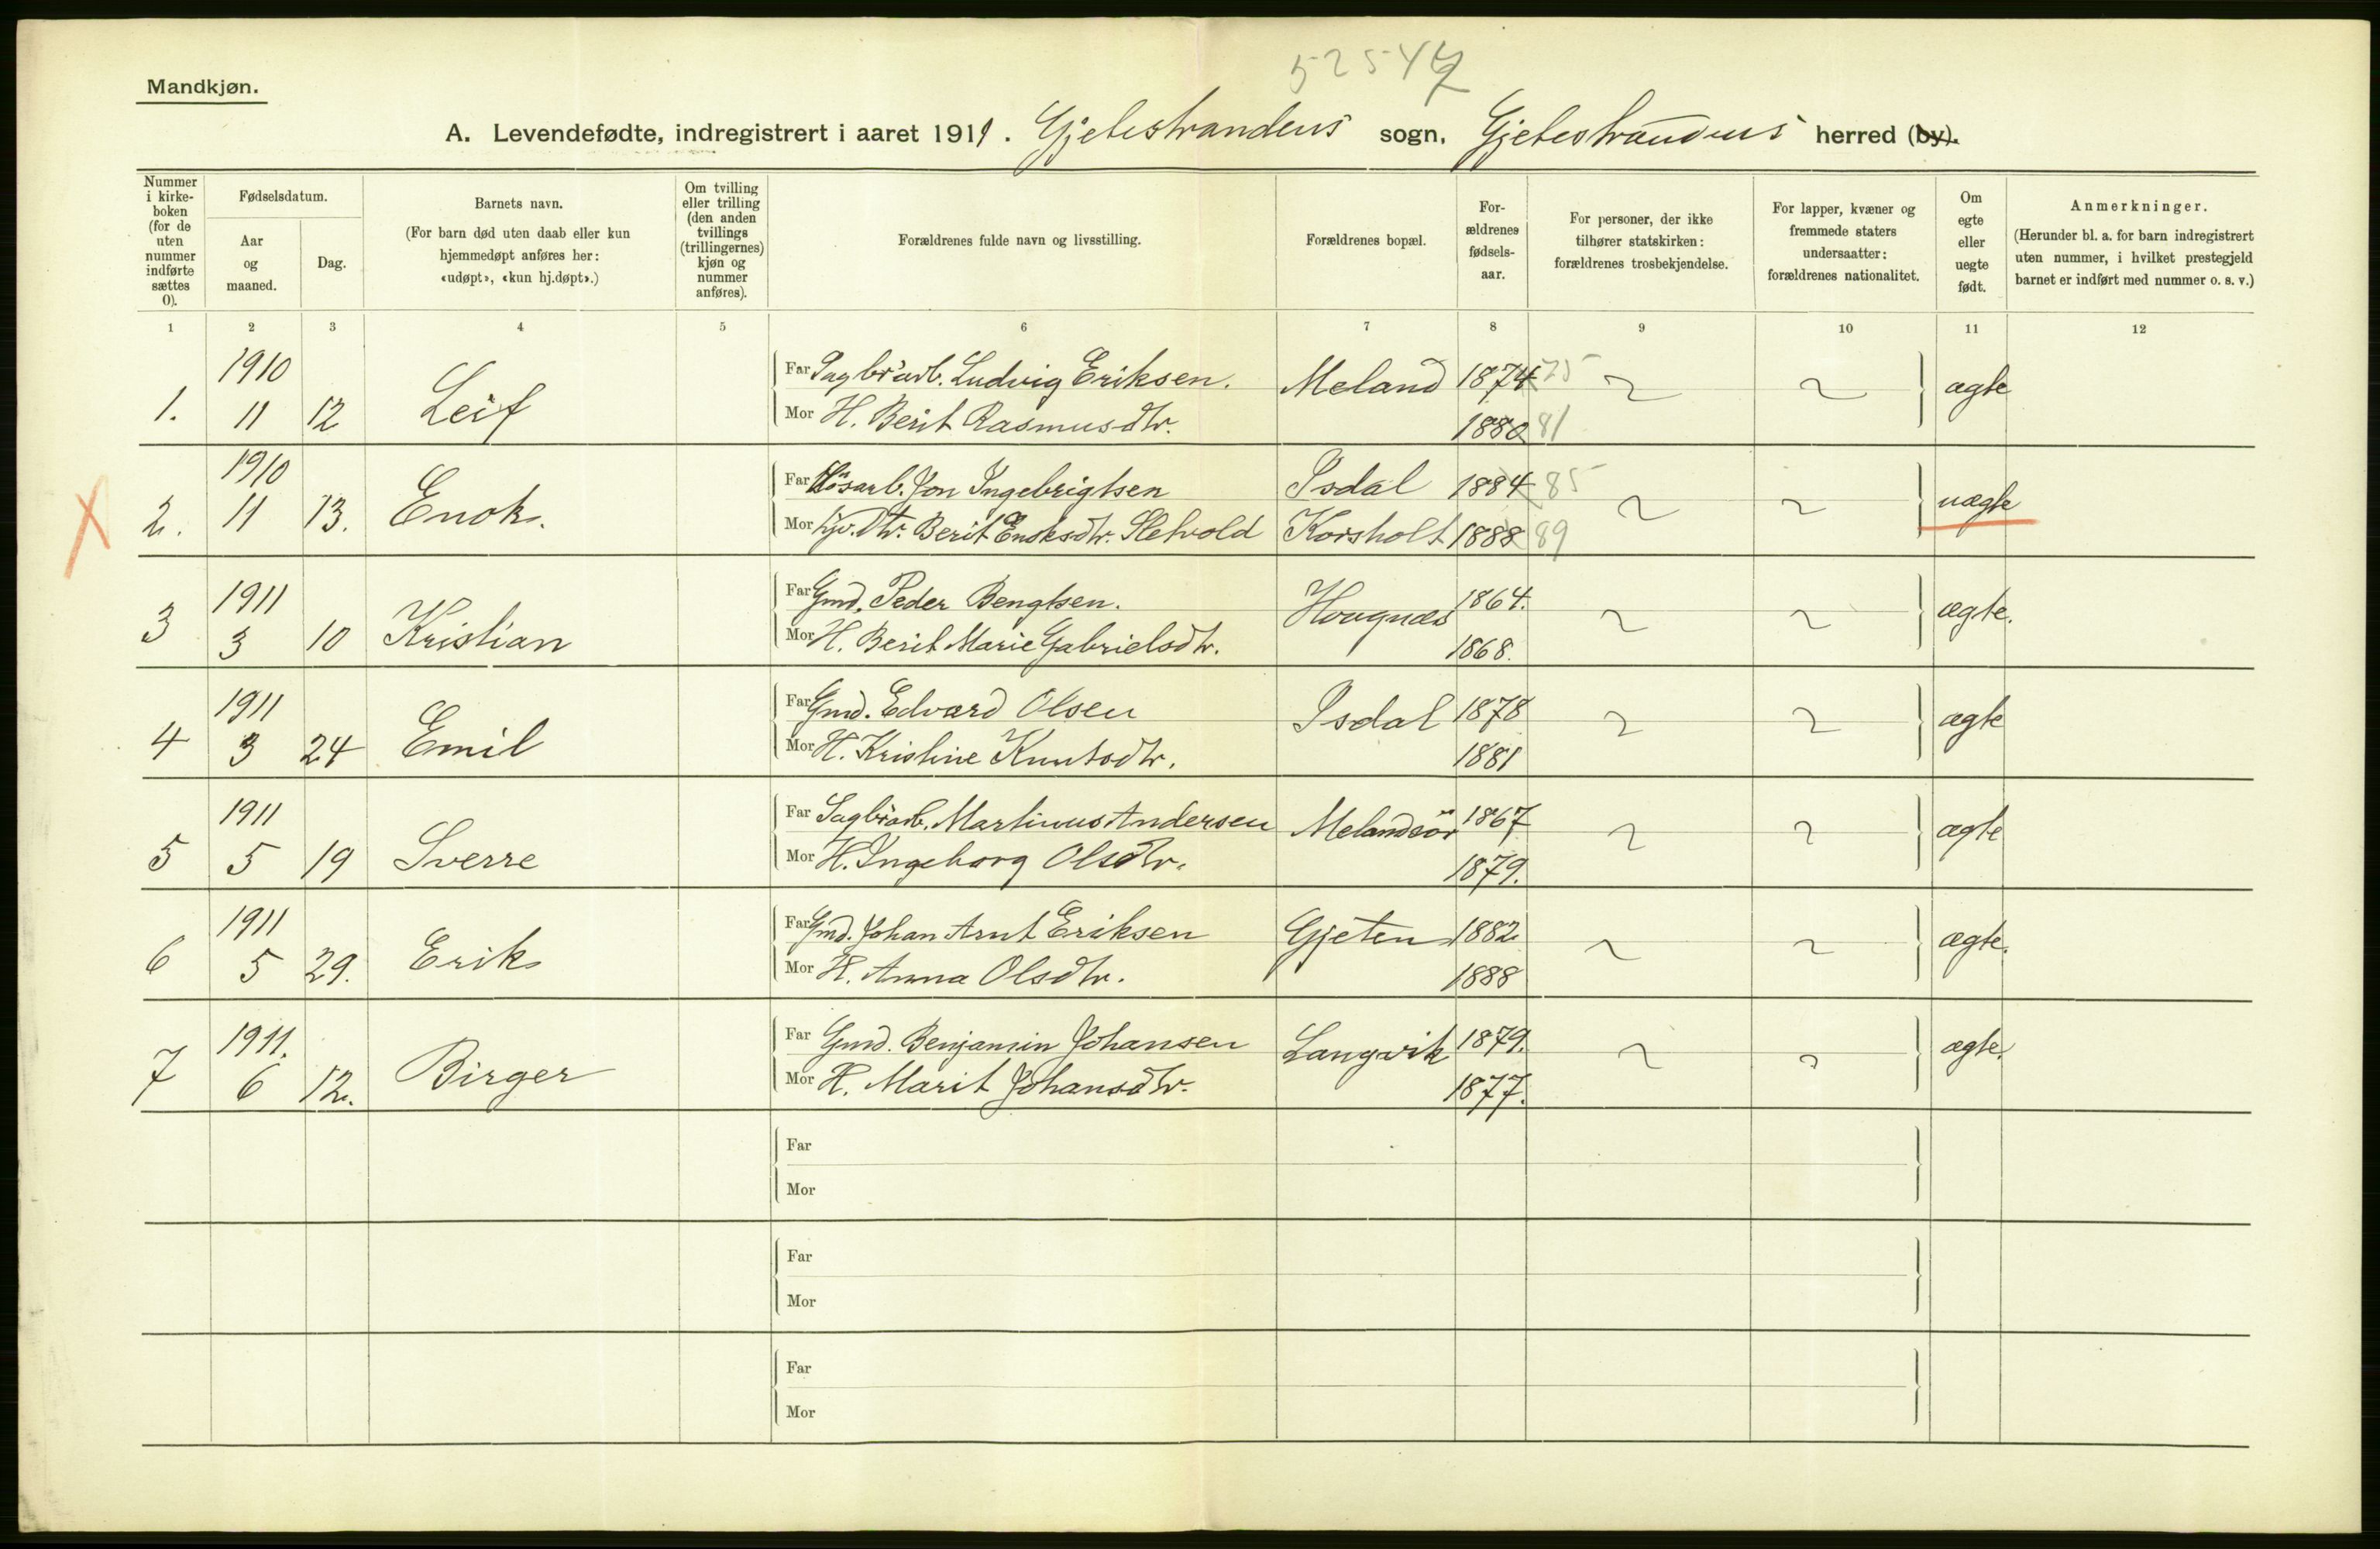 52547
Mandkjøn.
A. Levendefødte, indregistrert i aaret 1911. Gjetestrandens sogn, Gjetestrandens herred (by).
Nummer i kirke-boken (for de uten nummer indførte sættes 0).
Fødselsdatum.
Aar og maaned.
Dag.
Barnets navn.
(For barn død uten daab eller kun
hjemmedøpt anføres her:
«udøpt», «kun hj.døpt».)
Om tvilling eller trilling (den anden tvillings (trillingernes) kjøn og nummer anføres).
Forældrenes fulde navn og livsstilling.
Forældrenes bopæl.
For-ældrenes fødsels-aar.
For personer, der ikke
tilhører statskirken:
forældrenes trosbekjendelse.
For lapper, kvæner og
fremmede staters
undersaatter:
forældrenes nationalitet.
Om egte eller uegte født.
Anmerkninger.
(Herunder bl. a. for barn indregistrert
uten nummer, i hvilket prestegjeld
barnet er indført med nummer o. s. v.)
1 2 3 4 5 6 7 8 9 10 11 12
1. 1910 11 12 Leif Far Sagbr.arb. Ludvig Eriksen. Meland 1874 75 ægte
Mor H. Berit Rasmusdtr. 1880 81
X 2. 1910 11 13. Enok. Far Løsarb. Jon Ingebrigtsen Isdal 1884 85 uægte
Mor Gjv. Dtr. Berit Enoksdtr. Sletvold Korsholt 1888 89
3 1911 3 10 Kristian Far Gmd. Peder Bengtsen. Hovgnæs 1864. ægte.
Mor H. Berit Marie Gabrielsdtr. 1868.
4 1911 3 24 Emil Far Gmd. Edvard Olsen Isdal 1878 ægte
Mor H. Kristine Knutsdtr. 1881
5 1911 5 19 Sverre Far Sagbr.arb. Martinus Andersen Melandsör 1867 ægte
Mor H. Ingeborg Olsdtr. 1879.
6 1911 5 29. Erik Far Gmd. Johan Arnt Eriksen Gjeten 1882 ægte.
Mor H. Anna Olsdtr. 1888
7 1911. 6 12. Birger Far Gmd. Benjamin Johansen Langvik 1879. ægte.
Mor H. Marit Johansdtr. 1877.
Far
Mor
Far
Mor
Far
Mor